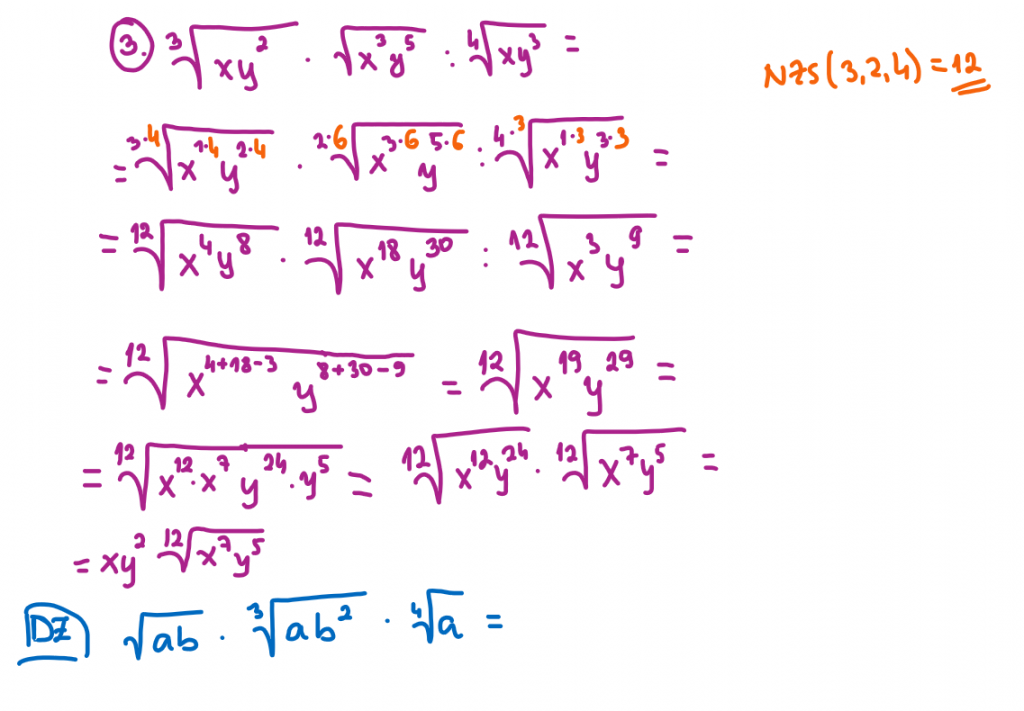 3. ∛(xy²) · √(x³y⁵) : ∜(xy³) =
NZS(3,2,4) = 12
= ³·⁴√(x¹·⁴y²·⁴) · ²·⁶√(x³·⁶y⁵·⁶) : ⁴·³√(x¹·³y³·³) =
= ¹²√(x⁴y⁸) · ¹²√(x¹⁸y³⁰) : ¹²√(x³y⁹) =
= ¹²√(x⁴⁺¹⁸⁻³ y⁸⁺³⁰⁻⁹) = ¹²√(x¹⁹y²⁹) =
= ¹²√(x¹²·x⁷y²⁴·y⁵) = ¹²√(x¹²y²⁴) · ¹²√(x⁷y⁵) =
= xy² ¹²√(x⁷y⁵)
DZ √(ab) · ∛(ab²) · ∜(a) =